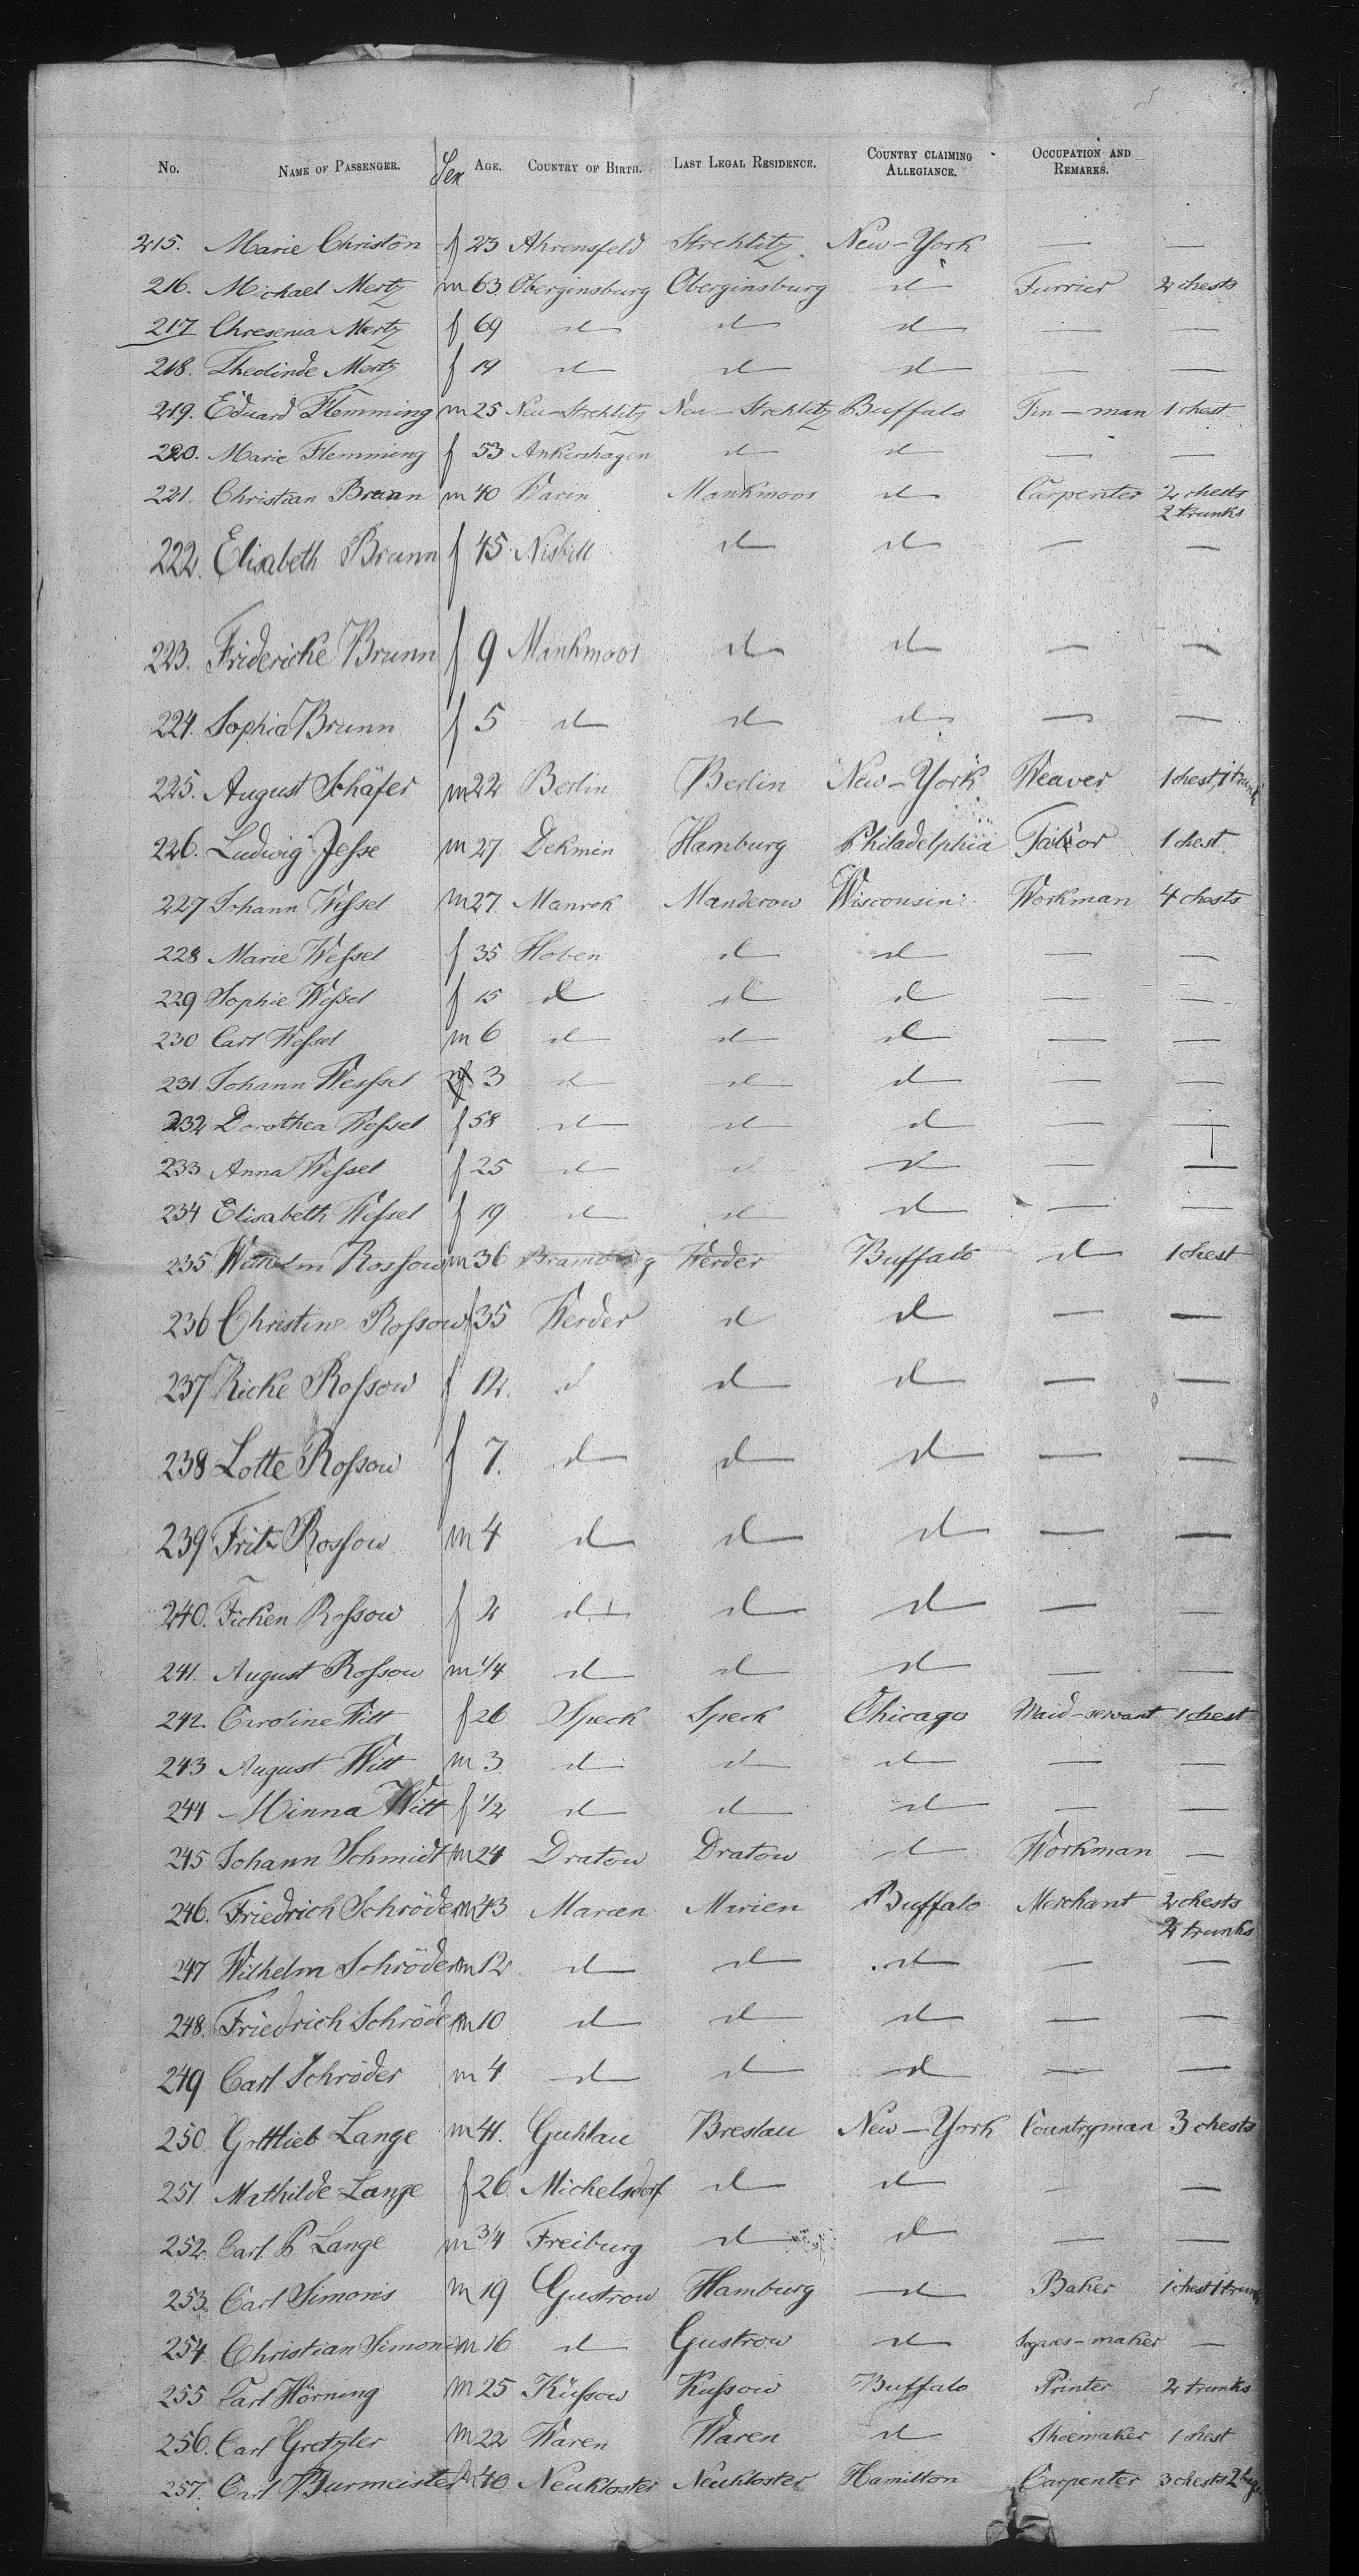 No. Name of Passenger. Sex Age. Country of Birth. Last Legal Residence. Country claiming Allegiance. Occupation and Remarks.
215. Marie Christon f 23 Ahrensfeld Strehlitz New-York — —
216. Michael Mertz m 63 Oberginsburg Oberginsburg d Furrier 2 chests
217 Chresenia Mertz f 69 d d d — —
218. Theolinde Mertz f 19 d d d — —
219. Eduard Flemming m 25 Neu-Strehlitz Neu-Strehlitz Buffalo Tin-man 1 chest
220. Marie Flemming f 53 Ankershagen d d — —
221. Christian Brunn m 40 Warin Mankmoos d Carpenter 2 chests
2 trunks
222. Elisabeth Brunn f 45 Nisbill d d — —
223. Fridericke Brunn f 9 Mankmoos d d — —
224. Sophia Brunn f 5 d d d — —
225. August Schäfer m 22 Berlin Berlin New-York Weaver 1 chest, 1 trunk
226. Ludwig Jesse m 27 Dekmin Hamburg Philadelphia Tailor 1 chest
227 Johann Wessel m 27. Manrok Manderow Wisconsin Workman 4 chests
228 Marie Wessel f 35 Hoben d d — —
229 Sophie Wessel f 15 d d d — —
230 Carl Wessel m 6 d d d — —
231. Johann Wessel 3 d d d — —
232 Dorothea Wessel f 58 d d d — —
233 Anna Wessel f 25 d d d — —
234 Elisabeth Wessel f 19 d d d — —
235 Wilhelm Rossow m 36 Werder Buffalo d 1 chest
236 Christine Rossow f 35 Werder d d — —
237 Ricke Rossow f 12. d d d — —
238 Lotte Rossow f 7. d d d — —
239 Fritz Rossow m 4 d d d — —
240. Ficken Rossow f 2 d d d — —
241. August Rossow m 1/4 d d d — —
242. Caroline Witt f 26 Speck Speck Chicago Maid-servant 1 chest
243 August Witt m 3 d d d — —
244 Minna Witt f 1/2 d d d — —
245 Johann Schmidt m 24 Dratow Dratow d Workman —
246. Friedrich Schröder m 43 Marien Marien Buffalo Merchant 2 chests
2 trunks
247 Wilhelm Schröder m 12 d d d — —
248. Friedrich Schröder m 10 d d d — —
249 Carl Schröder m 4 d d d — —
250. Gottlieb Lange m 41. Guhlau Breslau New-York Countryman 3 chests
251. Mathilde Lange f 26. Michelsdorf d d — —
252. Carl P Lange m 3/4 Freiburg d d — —
253. Carl Simonis m 19 Gustrow Hamburg d Baker 1 chest 1 trunk
254. Christian Simonis m 16 d Gustrow d Segars-maker —
255 Carl Hörning m 25 Küssow Kussow Buffalo Printer 2 trunks
256. Carl Gretzler m 22 Waren Waren d Shoemaker 1 chest
257. Carl Burmeister m 40 Neukloster Neukloster Hamilton Carpenter 3 chests 2 bags